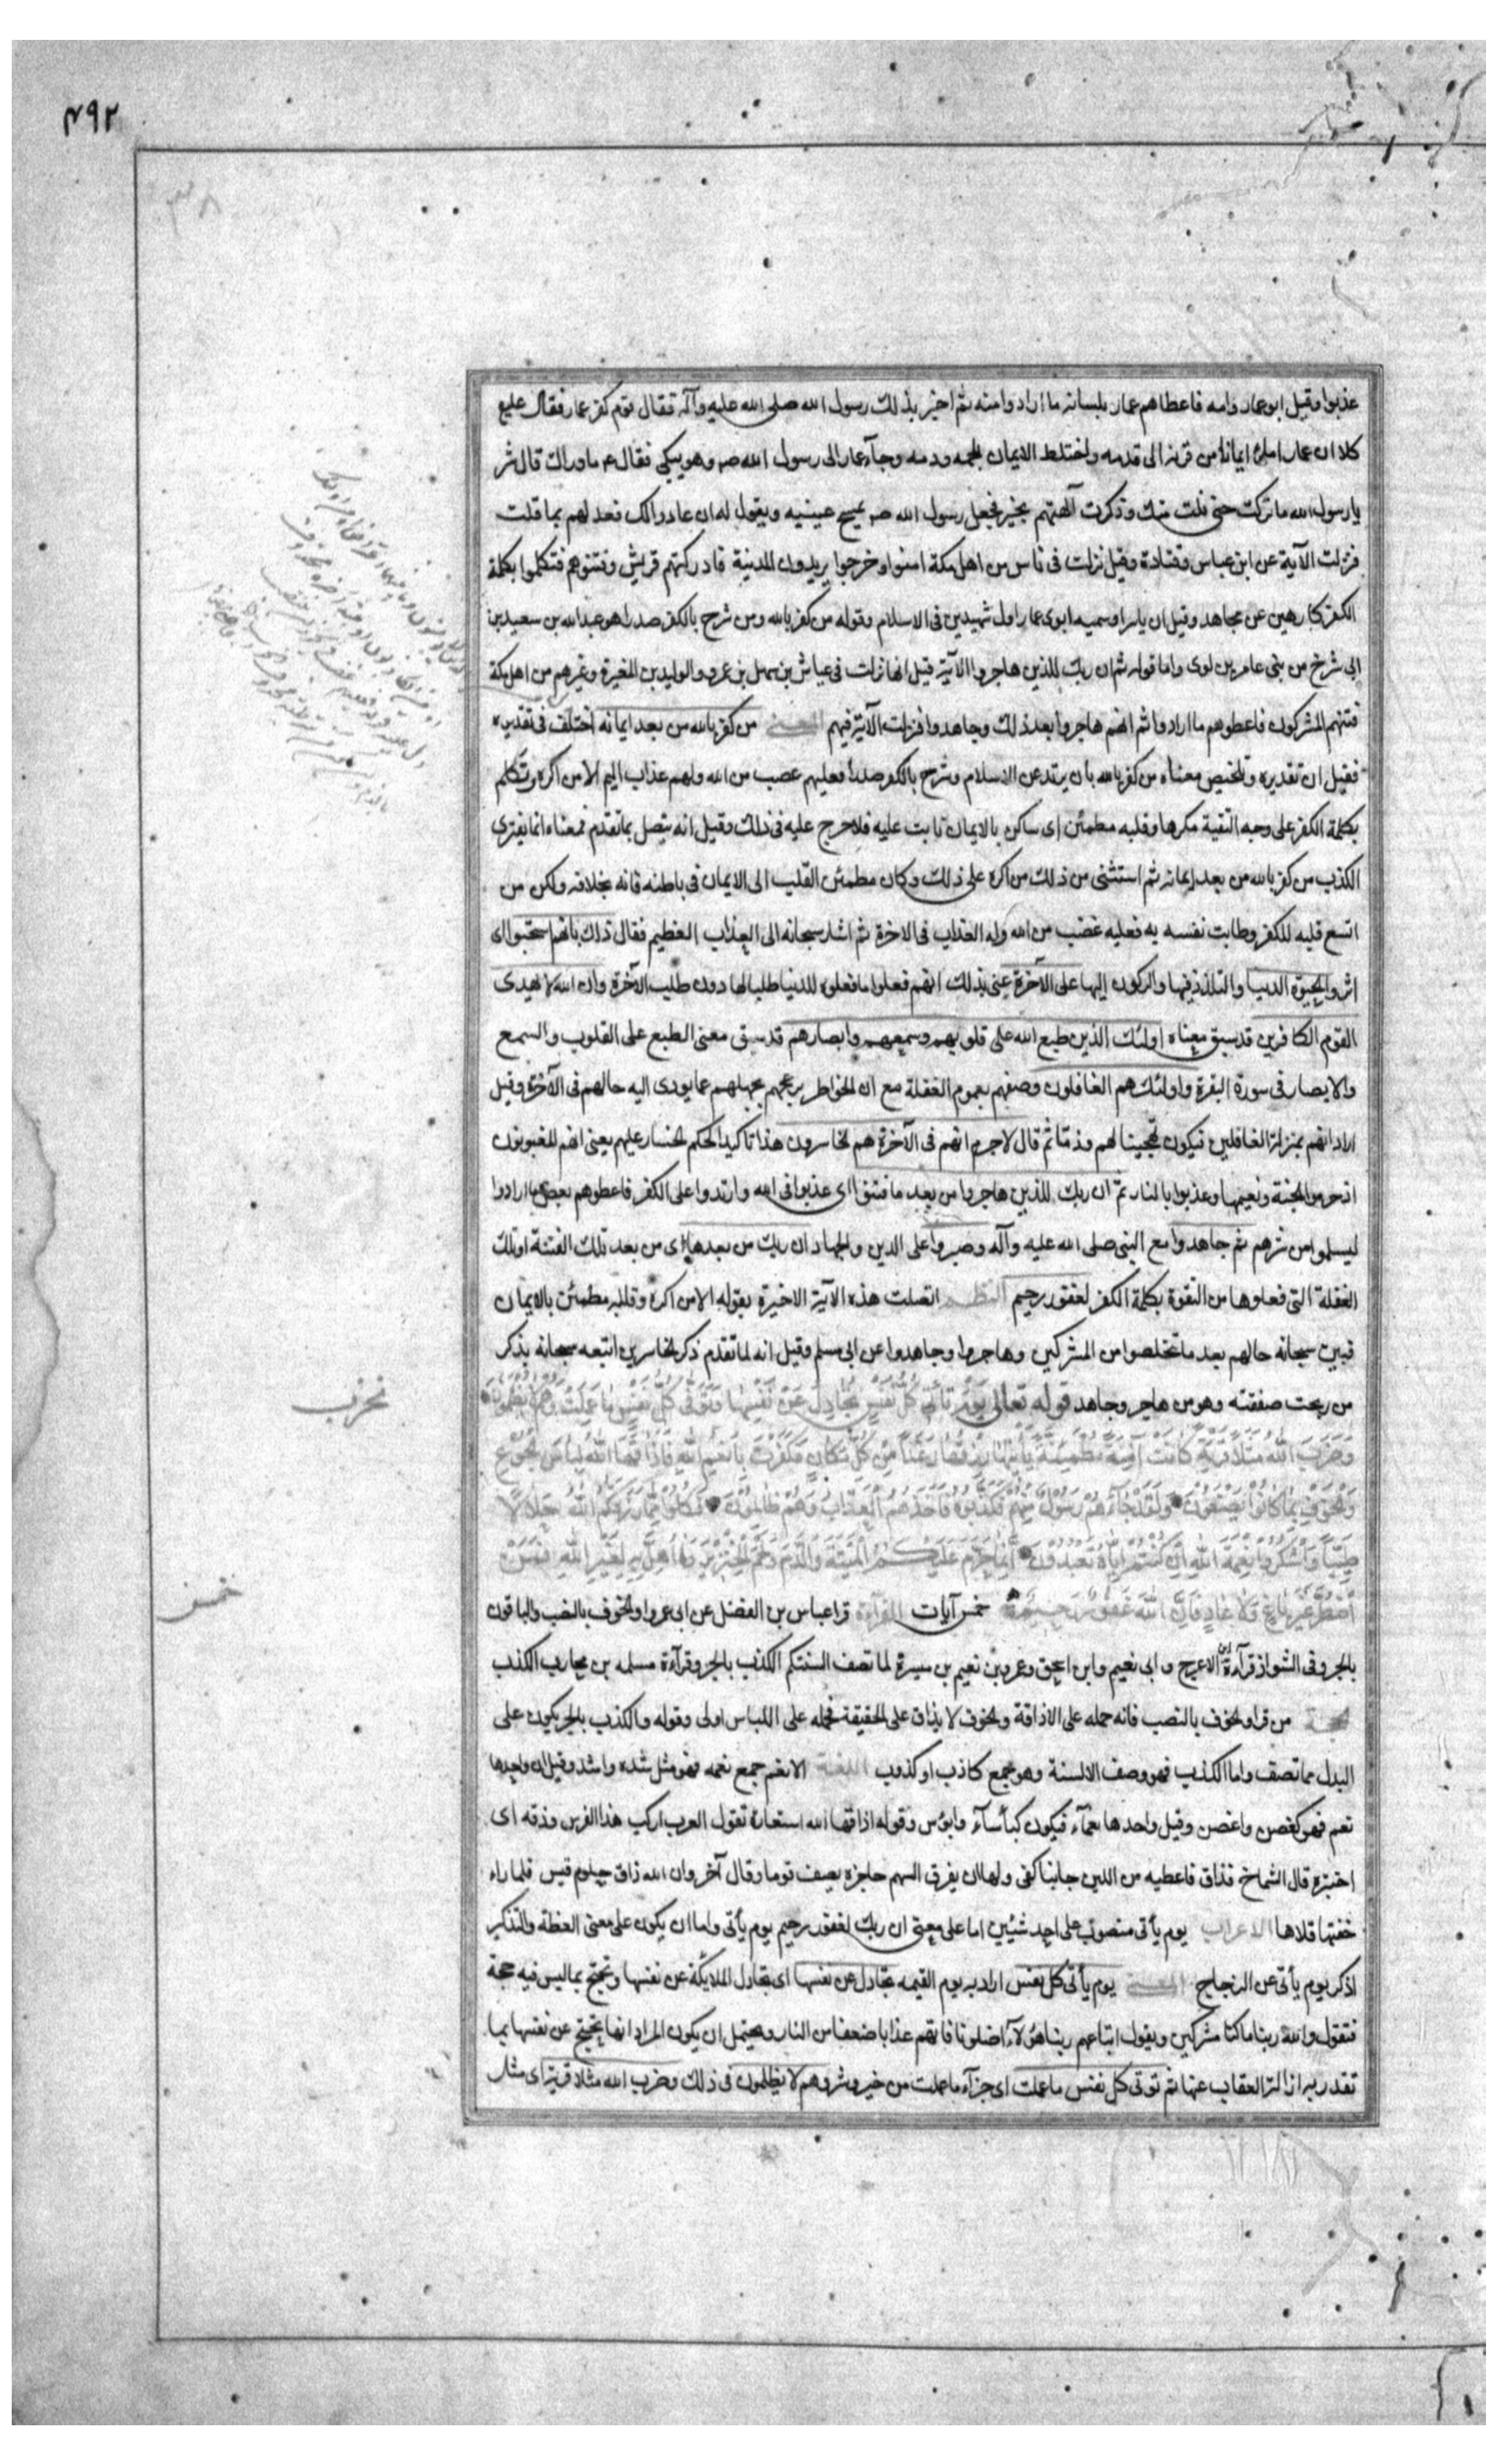 ٤٩٢
٣٨
عذبوا وقيل ابو عمار وامه فاعطاهم عمار بلسانه ما ارادوا منه ثم اخبر بذلك رسول الله صلى الله عليه وآله فقال قوم كفر عمار فقال عليع
كلا ان عمارا ملئ ايمانا من قرنه الى قدمه واختلط الايمان بلحمه ودمه وجآء عمار الى رسول الله صه وهو يبكي فقال عم ما وراك قال شر
يا رسول الله ما تركت حتى نلت منك وذكرت آلهتهم بخير فجعل رسول الله صه يمسح عينيه ويقول له ان عادوا لك فعد لهم بما قلت
فنزلت الآية عن ابن عباس وقتادة وقيل نزلت فى ناس من اهل مكة امنوا وخرجوا يريدون المدينة فادركتهم قريش وفتنوهم فتكلموا بكلمة
الكفر كارهين عن مجاهد وقيل ان ياسرا وسميه ابوى عمار اول شهيدين فى الاسلام وقوله من كفر بالله ومن شرح بالكفر صدرا هو عبدالله بن سعيد بن
ابى شرخ من بنى عامر بن لوى واما قوله ثم ان ربك للذين هاجروا الآية قيل انها نزلت فى عياش بن سهل بن عمرو والوليد بن المغيرة وغيرهم من اهل مكة
فتنهم المشركون فاعطوهم ما ارادوا ثم انهم هاجروا بعد ذلك وجاهدوا فنزلت الآية فيهم المعنى من كفر بالله من بعد ايمانه اختلف فى تقديره
فقيل ان تقديره وتلخيص معناه من كفر بالله بان يرتد عن الاسلام وشرح بالكفر صدرا فعليهم غصب من الله ولهم عذاب اليم الا من اكره وتكلم
بكلمة الكفر على وجه التقية مكرها وقلبه مطمئن اى ساكن بالايمان ثابت عليه فلا حرج عليه فى ذلك وقيل انه يتصل بما تقدم فمعناه انما يفترى
الكذب من كفر بالله من بعد ايمانه ثم استثنى من ذلك من اكره على ذلك وكان مطمئن القلب الى الايمان فى باطنه فانه بخلافه ولكن من
اتسع قلبه للكفر وطابت نفسه به فعليه غضب من الله وله العذاب فى الاخرة ثم اشار سبحانه الى العذاب العظيم فقال ذلك بانهم استحبوا اى
اثروا الحيوة الدنيا والتلذذ فيها والركون اليها على الآخرة عنى بذلك انهم فعلوا ما فعلوه للدنيا طلبا لها دون طلب الآخرة وان الله لا يهدى
القوم الكافرين قد سبق معناه اولئك الذين طبع الله على قلوبهم وسمعهم وابصارهم قد سبق معنى الطبع على القلوب والسمع
والابصار فى سورة البقرة واولئك هم الغافلون وصفهم بعموم الغفلة مع ان الخواطر يزعجهم بجهلهم عما يودى اليه حالهم فى الآخرة وقيل
اراد انهم بمنزلة الغافلين فيكون تهجينا لهم وذمّا ثم قال لاجرم انهم فى الآخرة هم الخاسرون هذا تاكيد الحكم الخسار عليهم يعنى انهم المغبونون
اذ حرموا الجنة ونعيمها وعذبوا بالنار ثم ان ربك للذين هاجروا من بعد ما فتنوا اى عذبوا فى الله وارتدوا على الكفر فاعطوهم بعض ما ارادوا
ليسلموا من شرهم ثم جاهدوا مع النبى صلى الله عليه وآله وصبروا على الدين والجهاد ان ربك من بعدها اى من بعد تلك الفتنة او تلك
الفعلة التى فعلوها من التفوة بكلمة الكفر لغفور رحيم النظم اتصلت هذه الآية الاخيرة بقوله الا من اكره وقلبه مطمئن بالايمان
فبين سبحانه حالهم بعد ما تخلصوا من المشركين وهاجروا وجاهدوا عن ابى مسلم وقيل انه لما تقدم ذكر الخاسرين اتبعه سبحانه بذكر
من ربحت صفقته وهو من هاجر وجاهد قوله تعالى يَوْمَ تَأْتِى كُلُّ نَفْسٍ تُجَادِلُ عَنْ نَفْسِهَا وَتُوَفّى كُلُّ نَفْسٍ مَا عَمِلَتْ وَهُمْ لَا يُظْلَمُونَ
وَضَرَبَ اللهُ مَثَلًا قَرْيَةً كَانَتْ آمِنَةً مُطْمَئِنَّةً يَأْتِيهَا رِزْقُهَا رَغَدًا مِنْ كُلِّ مَكَانٍ فَكَفَرَتْ بِأَنْعُمِ اللهِ فَاَذَاقَهَا اللهُ لِبَاسَ الْجُوعِ
وَالْخَوْفِ بِمَا كَانُوا يَصْنَعُونَ وَلَقَدْ جَآءَهُمْ رَسُولٌ مِنْهُمْ فَكَذَّبُوهُ فَاَخَذَهُمُ الْعَذَابُ وَهُمْ ظَالِمُونَ فَكُلُوا مِمَّا رَزَقَكُمُ اللهُ حَلَالًا
طَيِّبًا وَاشْكُرُوا نِعْمَةَ اللهِ اِنْ كُنْتُمْ اِيَّاهُ تَعْبُدُونَ اِنَّمَا حَرَّمَ عَلَيْكُمُ الْمَيْتَةَ وَالدَّمَ وَلَحْمَ الْخِنْزِيرِ وَمَا اُهِلَّ بِهِ لِغَيْرِ اللهِ فَمَنِ
اضْطُرَّ غَيْرَ بَاغٍ وَلَا عَادٍ فَاِنَّ اللهَ غَفُورٌ رَحِيمٌ خمس آيات القرآءة قرا عباس بن الفضل عن ابى عمرو والخوف بالنصب والباقون
بالجر وفى الشواذ قرآءة ابن الاعرج و ابى نعيم وابن اسحق وعمرو بن نعيم بن ميسرة لما تصف السنتكم الكذب بالجر وقرآءة مسلمه بن محارب الكذب
الحجة من قرا والخوف بالنصب فانه حمله على الاذاقة والخوف لا يذاق على الحقيقة فحمله على اللباس اولى وقوله والكذب بالجر يكون على
البدل مما تصف واما الكذب فهو وصف الالسنة وهو جمع كاذب او كذوب اللغة الانعم جمع نعمه فهو مثل شده واشد وقيل ان واحدها
نعم فهو كغصن واغصن وقيل واحدها نعمآء فيكون كبأسآء وابؤس وقوله اذاقها الله استعارة تقول العرب اركب هذا الفرس وذقه اى
اختبره قال الشماخ فذاق فاعطيه من اللين جانبا كفى ولها ان يغرق السهم حاجزه يصف قوما وقال آخر وان الله ذاق حلوم قيس فلما راء
خفتها قلاها الاعراب يوم يأتى منصوب على احد شيئين اما على معنى ان ربك لغفور رحيم يوم يأتى واما ان يكون على معنى العظة والتذكير
اذكر يوم يأتى عن الزجاج المعنى يوم يأتى كل نفس اراد به يوم القيمه تجادل عن نفسها اى تجادل الملايكة عن نفسها وتحتج بما ليس فيه حجة
فتقول والله ربنا ما كنا مشركين ويقول اتباعهم ربنا هؤلآء اضلونا فاتهم عذابا ضعفا من النار ويحتمل ان يكون المراد انها تحتج عن نفسها بما
تقدر به ازالة العقاب عنها ثم توفى كل نفس ما عملت اى جزآء ما عملت من خير وشر وهم لا يظلمون فى ذلك وضرب الله مثلا قرية اى مثل